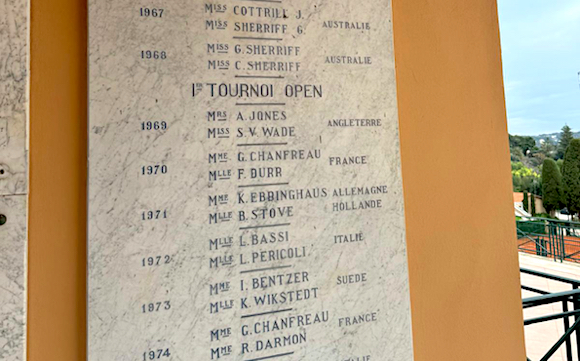 1967 Miss COTTRILL J.
Miss SHERRIFF G. AUSTRALIE
1968 Miss G. SHERRIFF
Miss C. SHERRIFF AUSTRALIE
1er TOURNOI OPEN
1969 Mrs A. JONES
Miss S.V. WADE ANGLETERRE
1970 Mme G. CHANFREAU FRANCE
Mlle F. DURR
1971 Mme K. EBBINGHAUS ALLEMAGNE
Mlle B. STOVE HOLLANDE
1972 Mlle L. BASSI ITALIE
Mlle L. PERICOLI
1973 Mme I. BENTZER SUEDE
Mlle K. WIKSTEDT
1974 Mme G. CHANFREAU FRANCE
Mme R. DARMON